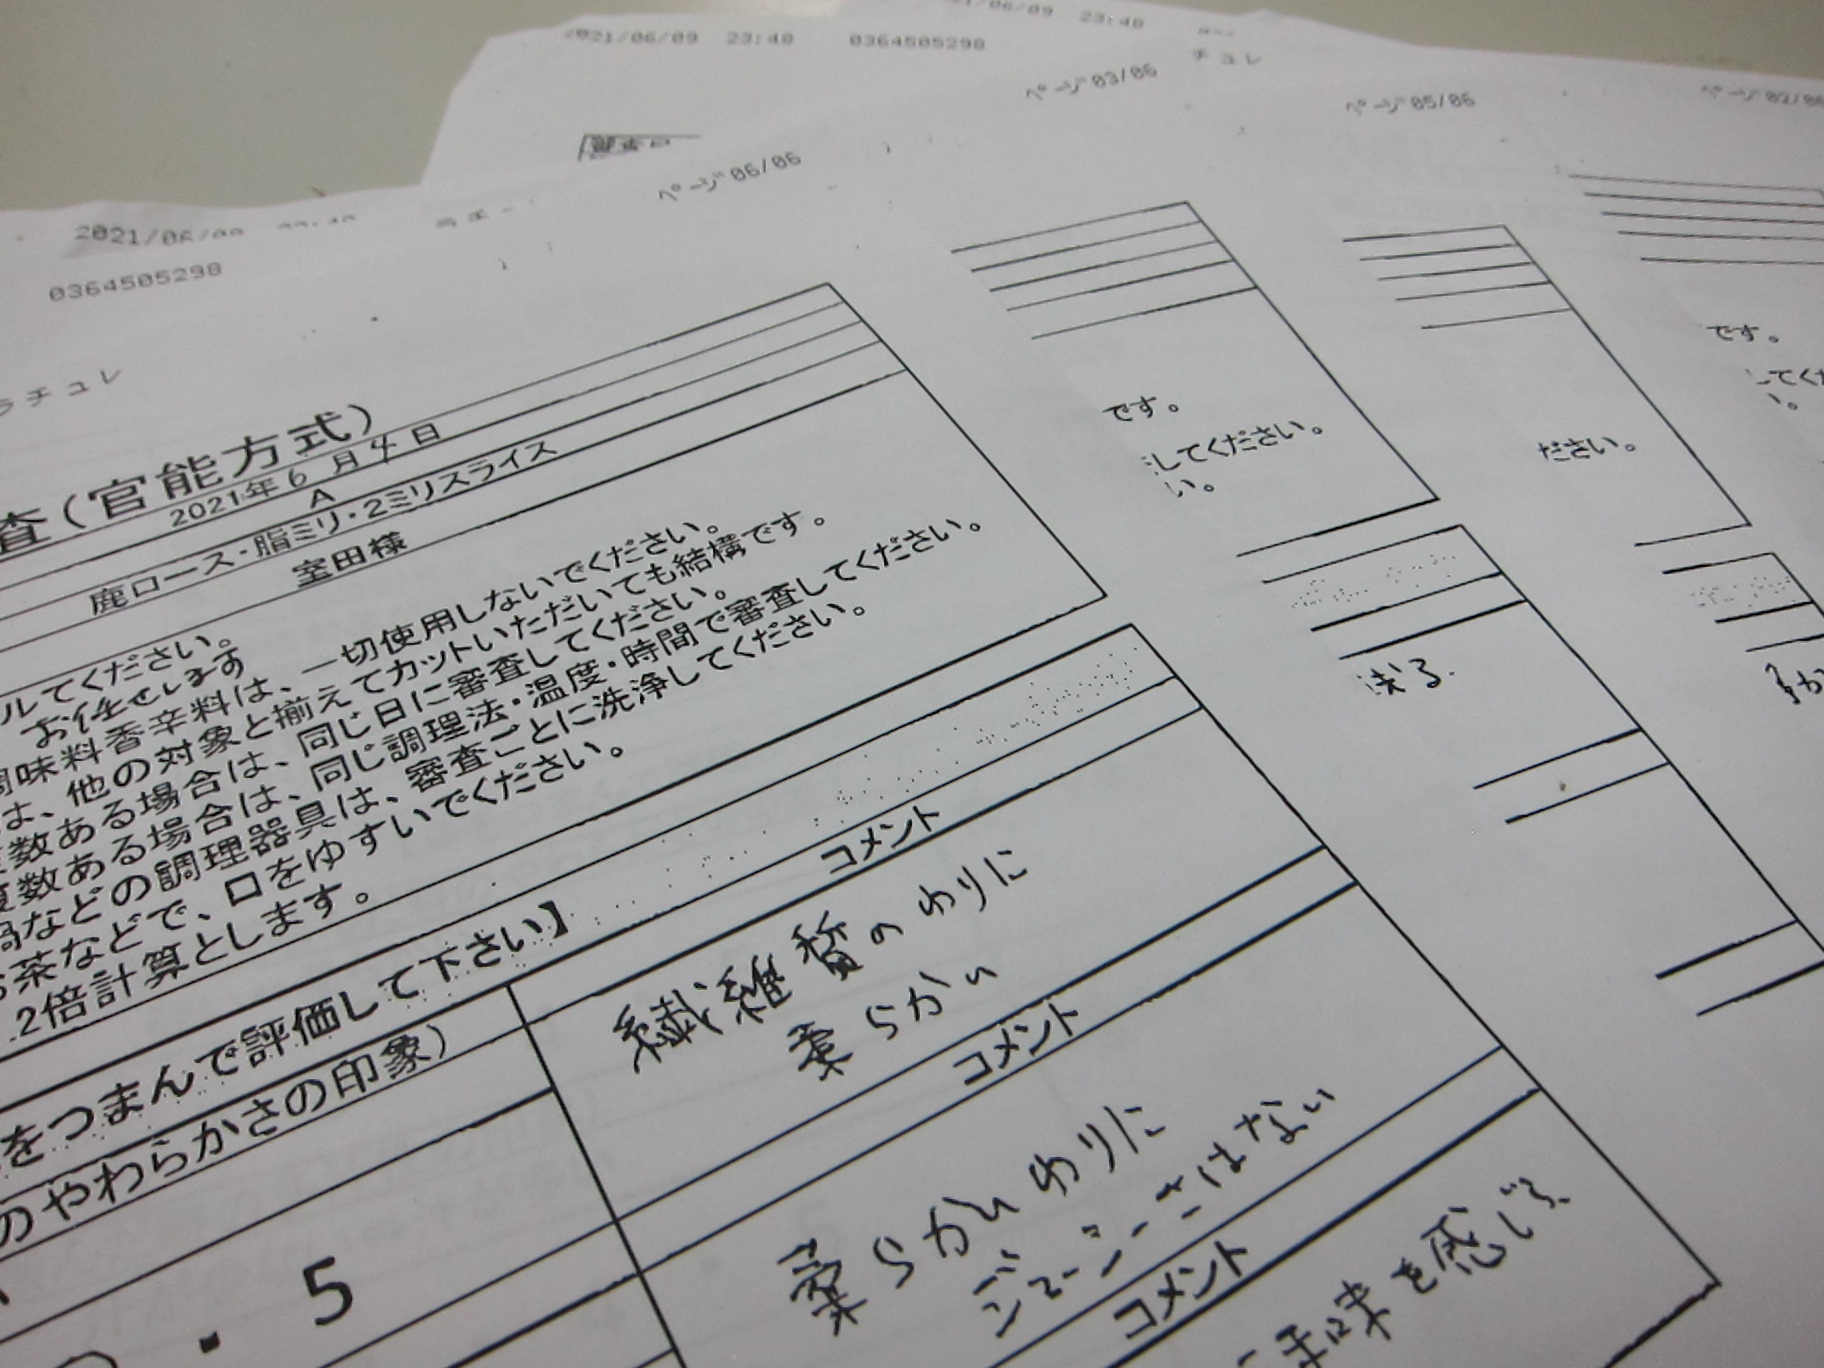 21/06/09 23:48
2021/06/09 23:48 0364505298
チュレ
ページ 03/06
ページ 05/06
ページ 02/06
ページ 06/06
2021/06/09 23:48
0364505298
ラチュレ
査(官能方式)
2021年6月4日
A
鹿ロース・脂ミリ・2ミリスライス
室田様
ルしてください。
お任せします
調味料香辛料は、一切使用しないでください。
は、他の対象と揃えてカットいただいても結構です。
複数ある場合は、同じ日に審査してください。
複数ある場合は、同じ調理法・温度・時間で審査してください。
鍋などの調理器具は、審査ごとに洗浄してください。
お茶などで、口をゆすいでください。
2倍計算とします。
をつまんで評価して下さい】
のやわらかさの印象)
・ 5
コメント
繊維質のわりに
柔らかい
コメント
柔らかいわりに
ジューシーさはない
コメント
味を感じる
です。
してください。
い。
ださい。
です。
してくだ
い。